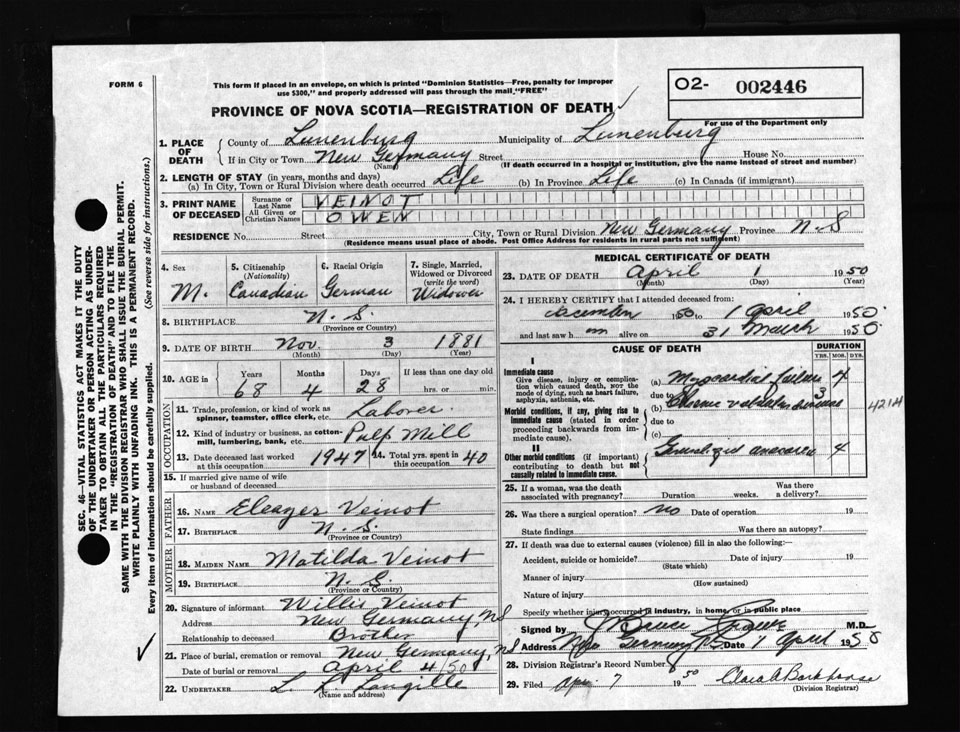 FORM 6
This form if placed in an envelope, on which is printed "Dominion Statistics—Free, penalty for improper
use $300," and properly addressed will pass through the mail "FREE"
PROVINCE OF NOVA SCOTIA—REGISTRATION OF DEATH
O2- 002446
For use of the Department only
SEC. 46—VITAL STATISTICS ACT MAKES IT THE DUTY
OF THE UNDERTAKER OR PERSON ACTING AS UNDER-
TAKER TO OBTAIN ALL THE PARTICULARS REQUIRED
IN THE "REGISTRATION OF DEATH" AND TO FILE THE
SAME WITH THE DIVISION REGISTRAR WHO SHALL ISSUE THE BURIAL PERMIT.
WRITE PLAINLY WITH UNFADING INK. THIS IS A PERMANENT RECORD.
Every item of information should be carefully supplied. (See reverse side for instructions.)
1. PLACE OF DEATH
County of Lunenburg Municipality of Lunenburg
If in City or Town New Germany Street House No.
(Name) (If death occurred in a hospital or institution, give the name instead of street and number)
2. LENGTH OF STAY (in years, months and days)
(a) In City, Town or Rural Division where death occurred Life (b) In Province Life (c) In Canada (if immigrant)
3. PRINT NAME OF DECEASED
Surname or Last Name VEINOT
All Given or Christian Names OWEN
RESIDENCE No. Street City, Town or Rural Division New Germany Province N.S
(Residence means usual place of abode. Post Office Address for residents in rural parts not sufficient)
4. Sex M.
5. Citizenship (Nationality) Canadian
6. Racial Origin German
7. Single, Married, Widowed or Divorced (write the word) Widower
8. BIRTHPLACE N. S.
(Province or Country)
9. DATE OF BIRTH Nov. 3 1881
(Month) (Day) (Year)
10. AGE in Years Months Days If less than one day old
68 4 28 hrs. or min.
OCCUPATION
11. Trade, profession, or kind of work as spinner, teamster, office clerk, etc. Laborer.
12. Kind of industry or business, as cotton-mill, lumbering, bank, etc. Pulp Mill
13. Date deceased last worked at this occupation 1947
14. Total yrs. spent in this occupation 40
15. If married give name of wife or husband of deceased
FATHER
16. NAME Eleazer Veinot
17. BIRTHPLACE N. S.
(Province or Country)
MOTHER
18. MAIDEN NAME Matilda Veinot
19. BIRTHPLACE N. S.
(Province or Country)
20. Signature of informant Willis Veinot
Address New Germany, NS
Relationship to deceased Brother
21. Place of burial, cremation or removal New Germany, N.S.
Date of burial or removal April 4/50
22. UNDERTAKER L. L. Langille
(Name and address)
MEDICAL CERTIFICATE OF DEATH
23. DATE OF DEATH April 1 1950
(Month) (Day) (Year)
24. I HEREBY CERTIFY that I attended deceased from:
December 1950 to 1 April 1950
and last saw h m alive on 31 March 1950
CAUSE OF DEATH
DURATION
YRS. MOS. DYS.
I
Immediate cause
Give disease, injury or complication which caused death, NOT the mode of dying, such as heart failure, asphyxia, asthenia, etc.
(a) Myocardial failure 4
due to
Morbid conditions, if any, giving rise to immediate cause (stated in order proceeding backwards from immediate cause).
(b) Chronic valvular disease 3
4214
due to
(c)
II
Other morbid conditions (if important) contributing to death but not causally related to immediate cause.
Generalized anasarca 4
25. If a woman, was the death associated with pregnancy? Duration weeks. Was there a delivery?
26. Was there a surgical operation? no Date of operation 19
State findings Was there an autopsy?
27. If death was due to external causes (violence) fill in also the following:
Accident, suicide or homicide? Date of injury 19
(State which)
Manner of injury
(How sustained)
Nature of injury
Specify whether injury occurred in industry, in home, or in public place
Signed by M.D.
Address New Germany N.S. Date 1 April 1950
28. Division Registrar's Record Number 8
29. Filed Apr. 7 1950 Clara A Barkhouse
(Division Registrar)